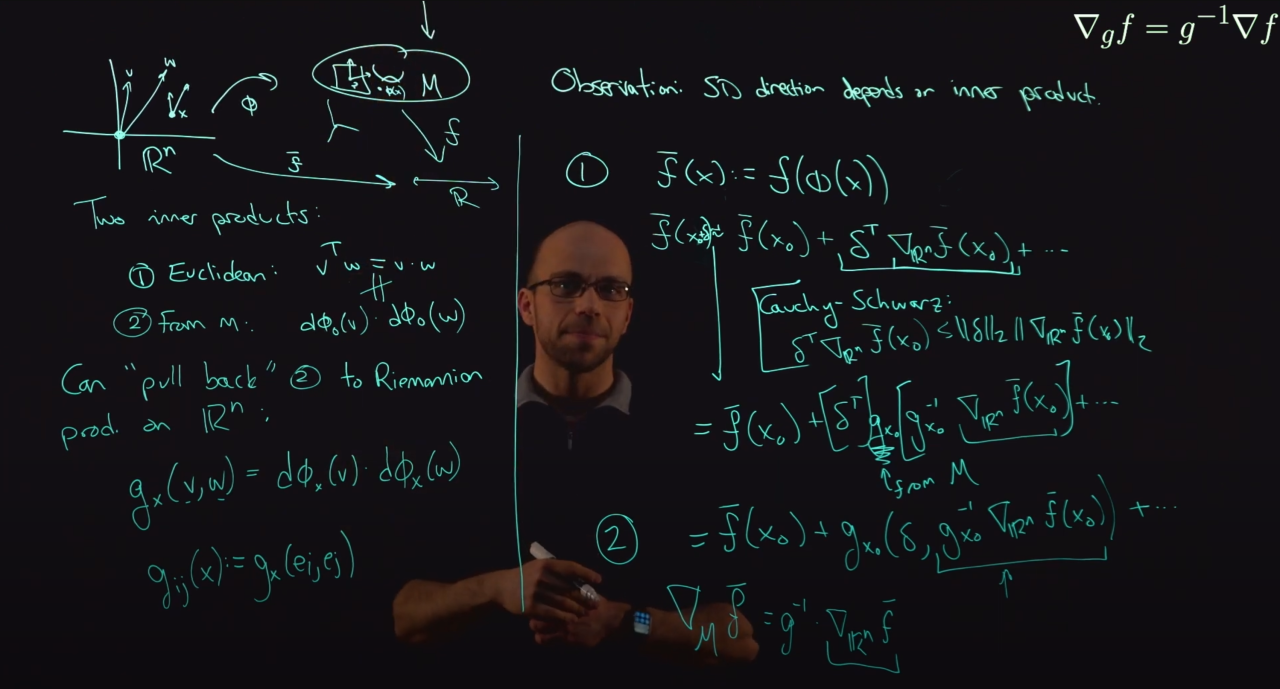 ∇_g f = g⁻¹∇f
v
w
x
ϕ
M
f
ℝⁿ
f̄
ℝ
Two inner products:
① Euclidean: vᵀw = v·w
② From M: dϕ₀(v)·dϕ₀(w)
Can "pull back" ② to Riemannian
prod. on ℝⁿ:
g_x(v,w) = dϕ_x(v)·dϕ_x(w)
g_ij(x) := g_x(e_i,e_j)
Observation: SD direction depends on inner product.
① f̄(x) := f(ϕ(x))
f̄(x₀+δ) ≈ f̄(x₀) + δᵀ ∇_ℝⁿ f̄(x₀) + ...
Cauchy-Schwarz:
δᵀ ∇_ℝⁿ f̄(x₀) ≤ ‖δ‖₂ ‖∇_ℝⁿ f̄(x₀)‖₂
= f̄(x₀) + [δᵀ] g_x₀ [g_x₀⁻¹ ∇_ℝⁿ f̄(x₀)] + ...
from M
② = f̄(x₀) + g_x₀(δ, g_x₀⁻¹ ∇_ℝⁿ f̄(x₀)) + ...
∇_M f̄ = g⁻¹ · ∇_ℝⁿ f̄